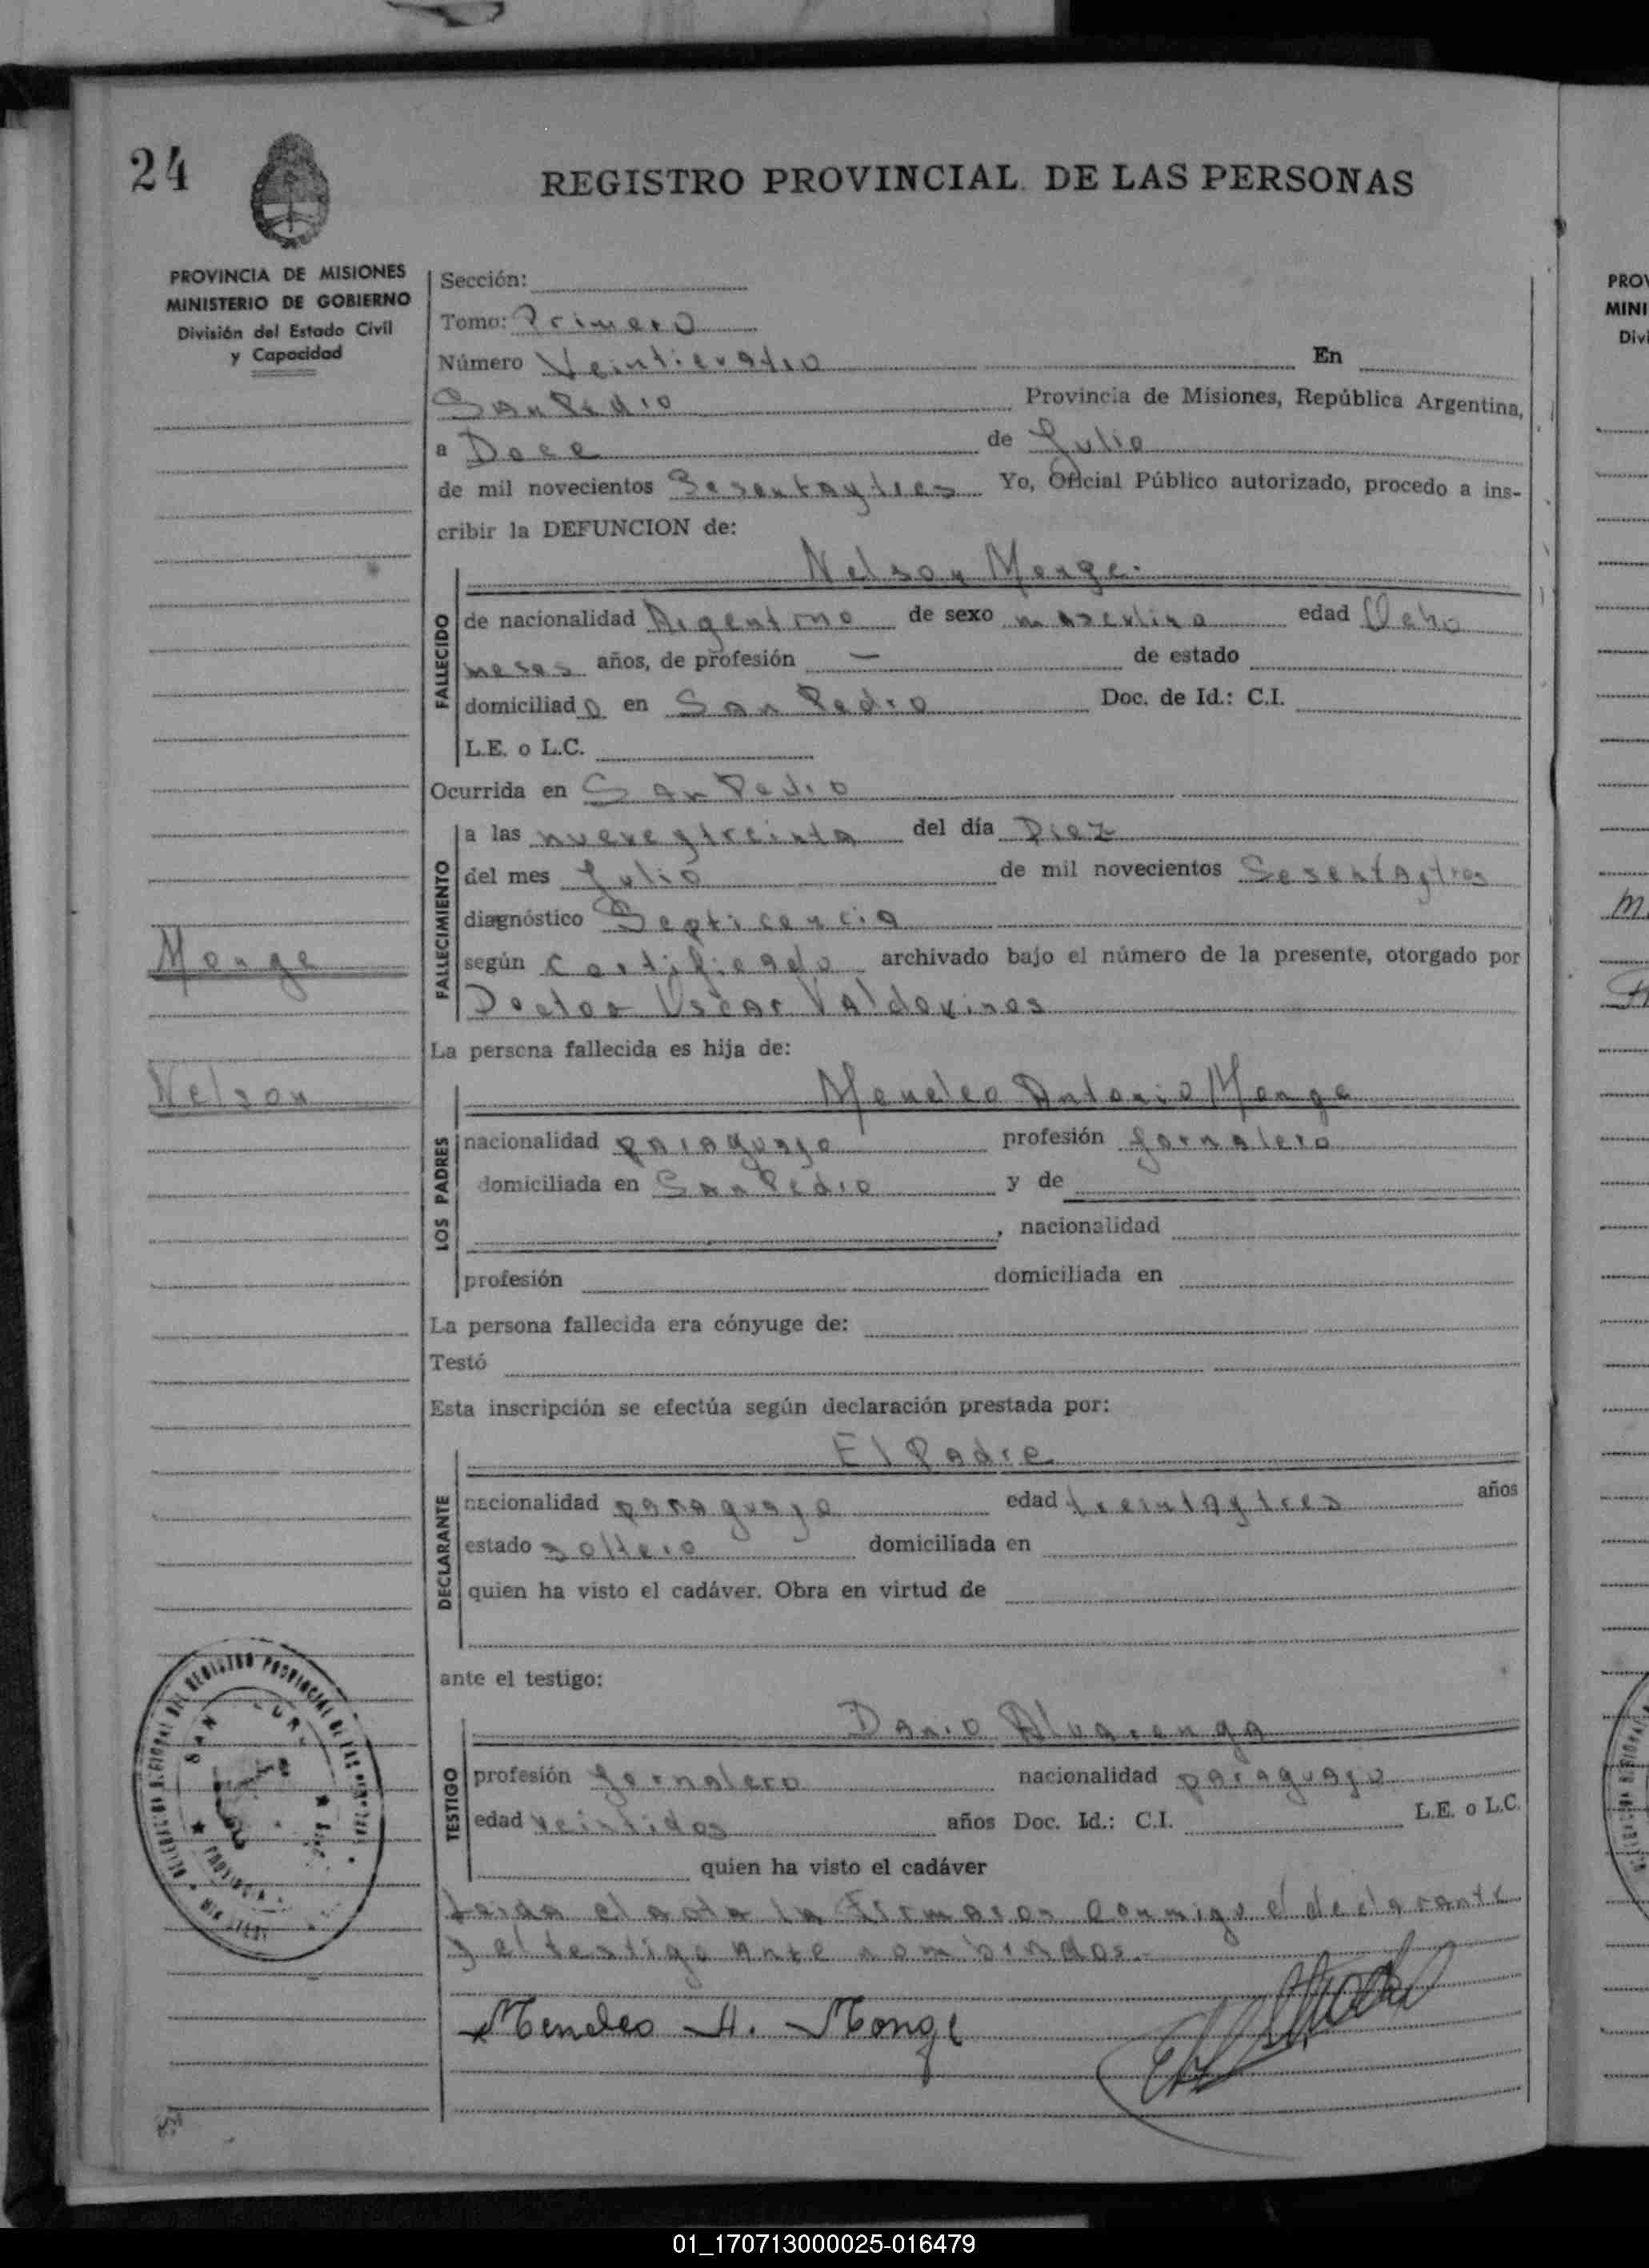 24
REGISTRO PROVINCIAL DE LAS PERSONAS
PROVINCIA DE MISIONES
MINISTERIO DE GOBIERNO
División del Estado Civil
y Capacidad
Sección:
Tomo: Primero
Número Veinticuatro En
San Pedro Provincia de Misiones, República Argentina,
a Doce de Julio
de mil novecientos Sesentaytres Yo, Oficial Público autorizado, procedo a ins-
cribir la DEFUNCION de:
Nelson Monge.
FALLECIDO
de nacionalidad Argentino de sexo masculino edad Ocho
meses años, de profesión — de estado
domiciliado en San Pedro Doc. de Id.: C.I.
L.E. o L.C.
Ocurrida en San Pedro
FALLECIMIENTO
a las nueveytreinta del día Diez
del mes Julio de mil novecientos Sesentaytres
diagnóstico
según Certificado archivado bajo el número de la presente, otorgado por
Doctor Oscar Valdovinos
Monge
Nelson
La persona fallecida es hija de:
LOS PADRES
Meneleo Antonio Monge
nacionalidad paraguayo profesión Jornalero
domiciliada en San Pedro y de
, nacionalidad
profesión domiciliada en
La persona fallecida era cónyuge de:
Testó
Esta inscripción se efectúa según declaración prestada por:
DECLARANTE
El Padre
nacionalidad paraguayo edad treintaytres años
estado soltero domiciliada en
quien ha visto el cadáver. Obra en virtud de
ante el testigo:
TESTIGO
Dario Alvarenga
profesión Jornalero nacionalidad paraguayo
edad veintidos años Doc. Id.: C.I. L.E. o L.C.
quien ha visto el cadáver
Leida el acta la Firmaron conmigo el declarante
y el testigo ante nombrados.-
Meneleo A. Monge
PROV
MINI
Divi
01_170713000025-016479